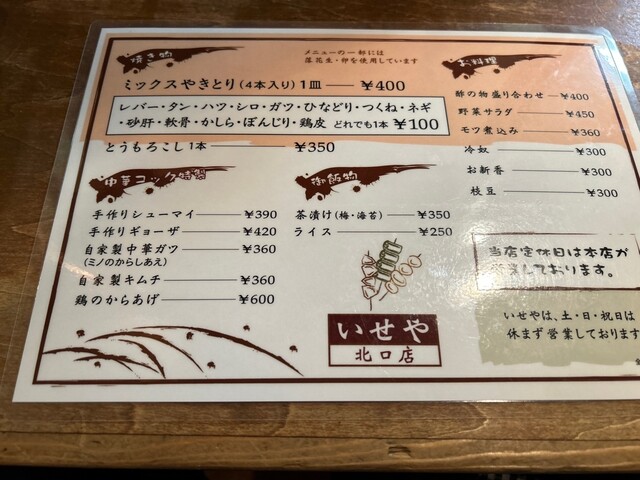 焼き物
メニューの一部には
落花生・卵を使用しています
ミックスやきとり(4本入り)1皿 ¥400
レバー・タン・ハツ・シロ・ガツ・ひなどり・つくね・ネギ
・砂肝・軟骨・かしら・ぼんじり・鶏皮 どれでも1本 ¥100
とうもろこし 1本 ¥350
お料理
酢の物盛り合わせ ¥400
野菜サラダ ¥450
モツ煮込み ¥360
冷奴 ¥300
お新香 ¥300
枝豆 ¥300
中華コック特製
手作りシューマイ ¥390
手作りギョーザ ¥420
自家製中華ガツ ¥360
(ミノのからしあえ)
自家製キムチ ¥360
鶏のからあげ ¥600
御飯物
茶漬け(梅・海苔) ¥350
ライス ¥250
いせや
北口店
当店定休日は本店が
しております。
いせやは、土・日・祝日は
休まず営業しております